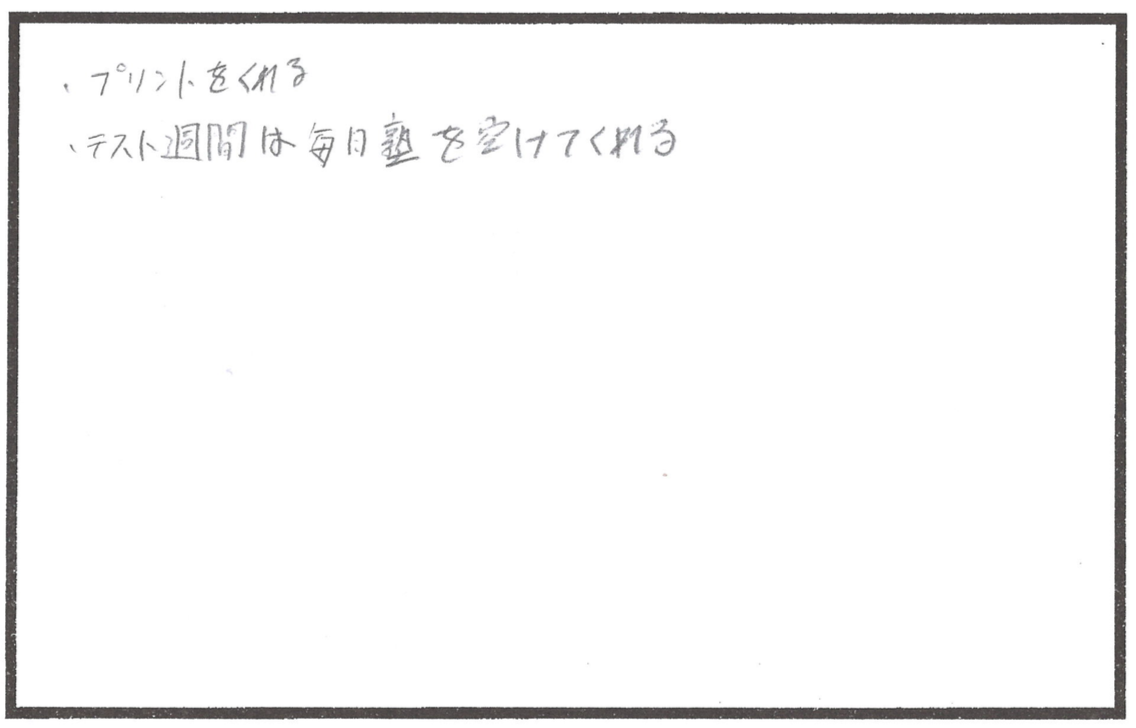 ・プリントをくれる
・テスト週間は毎日塾を空けてくれる